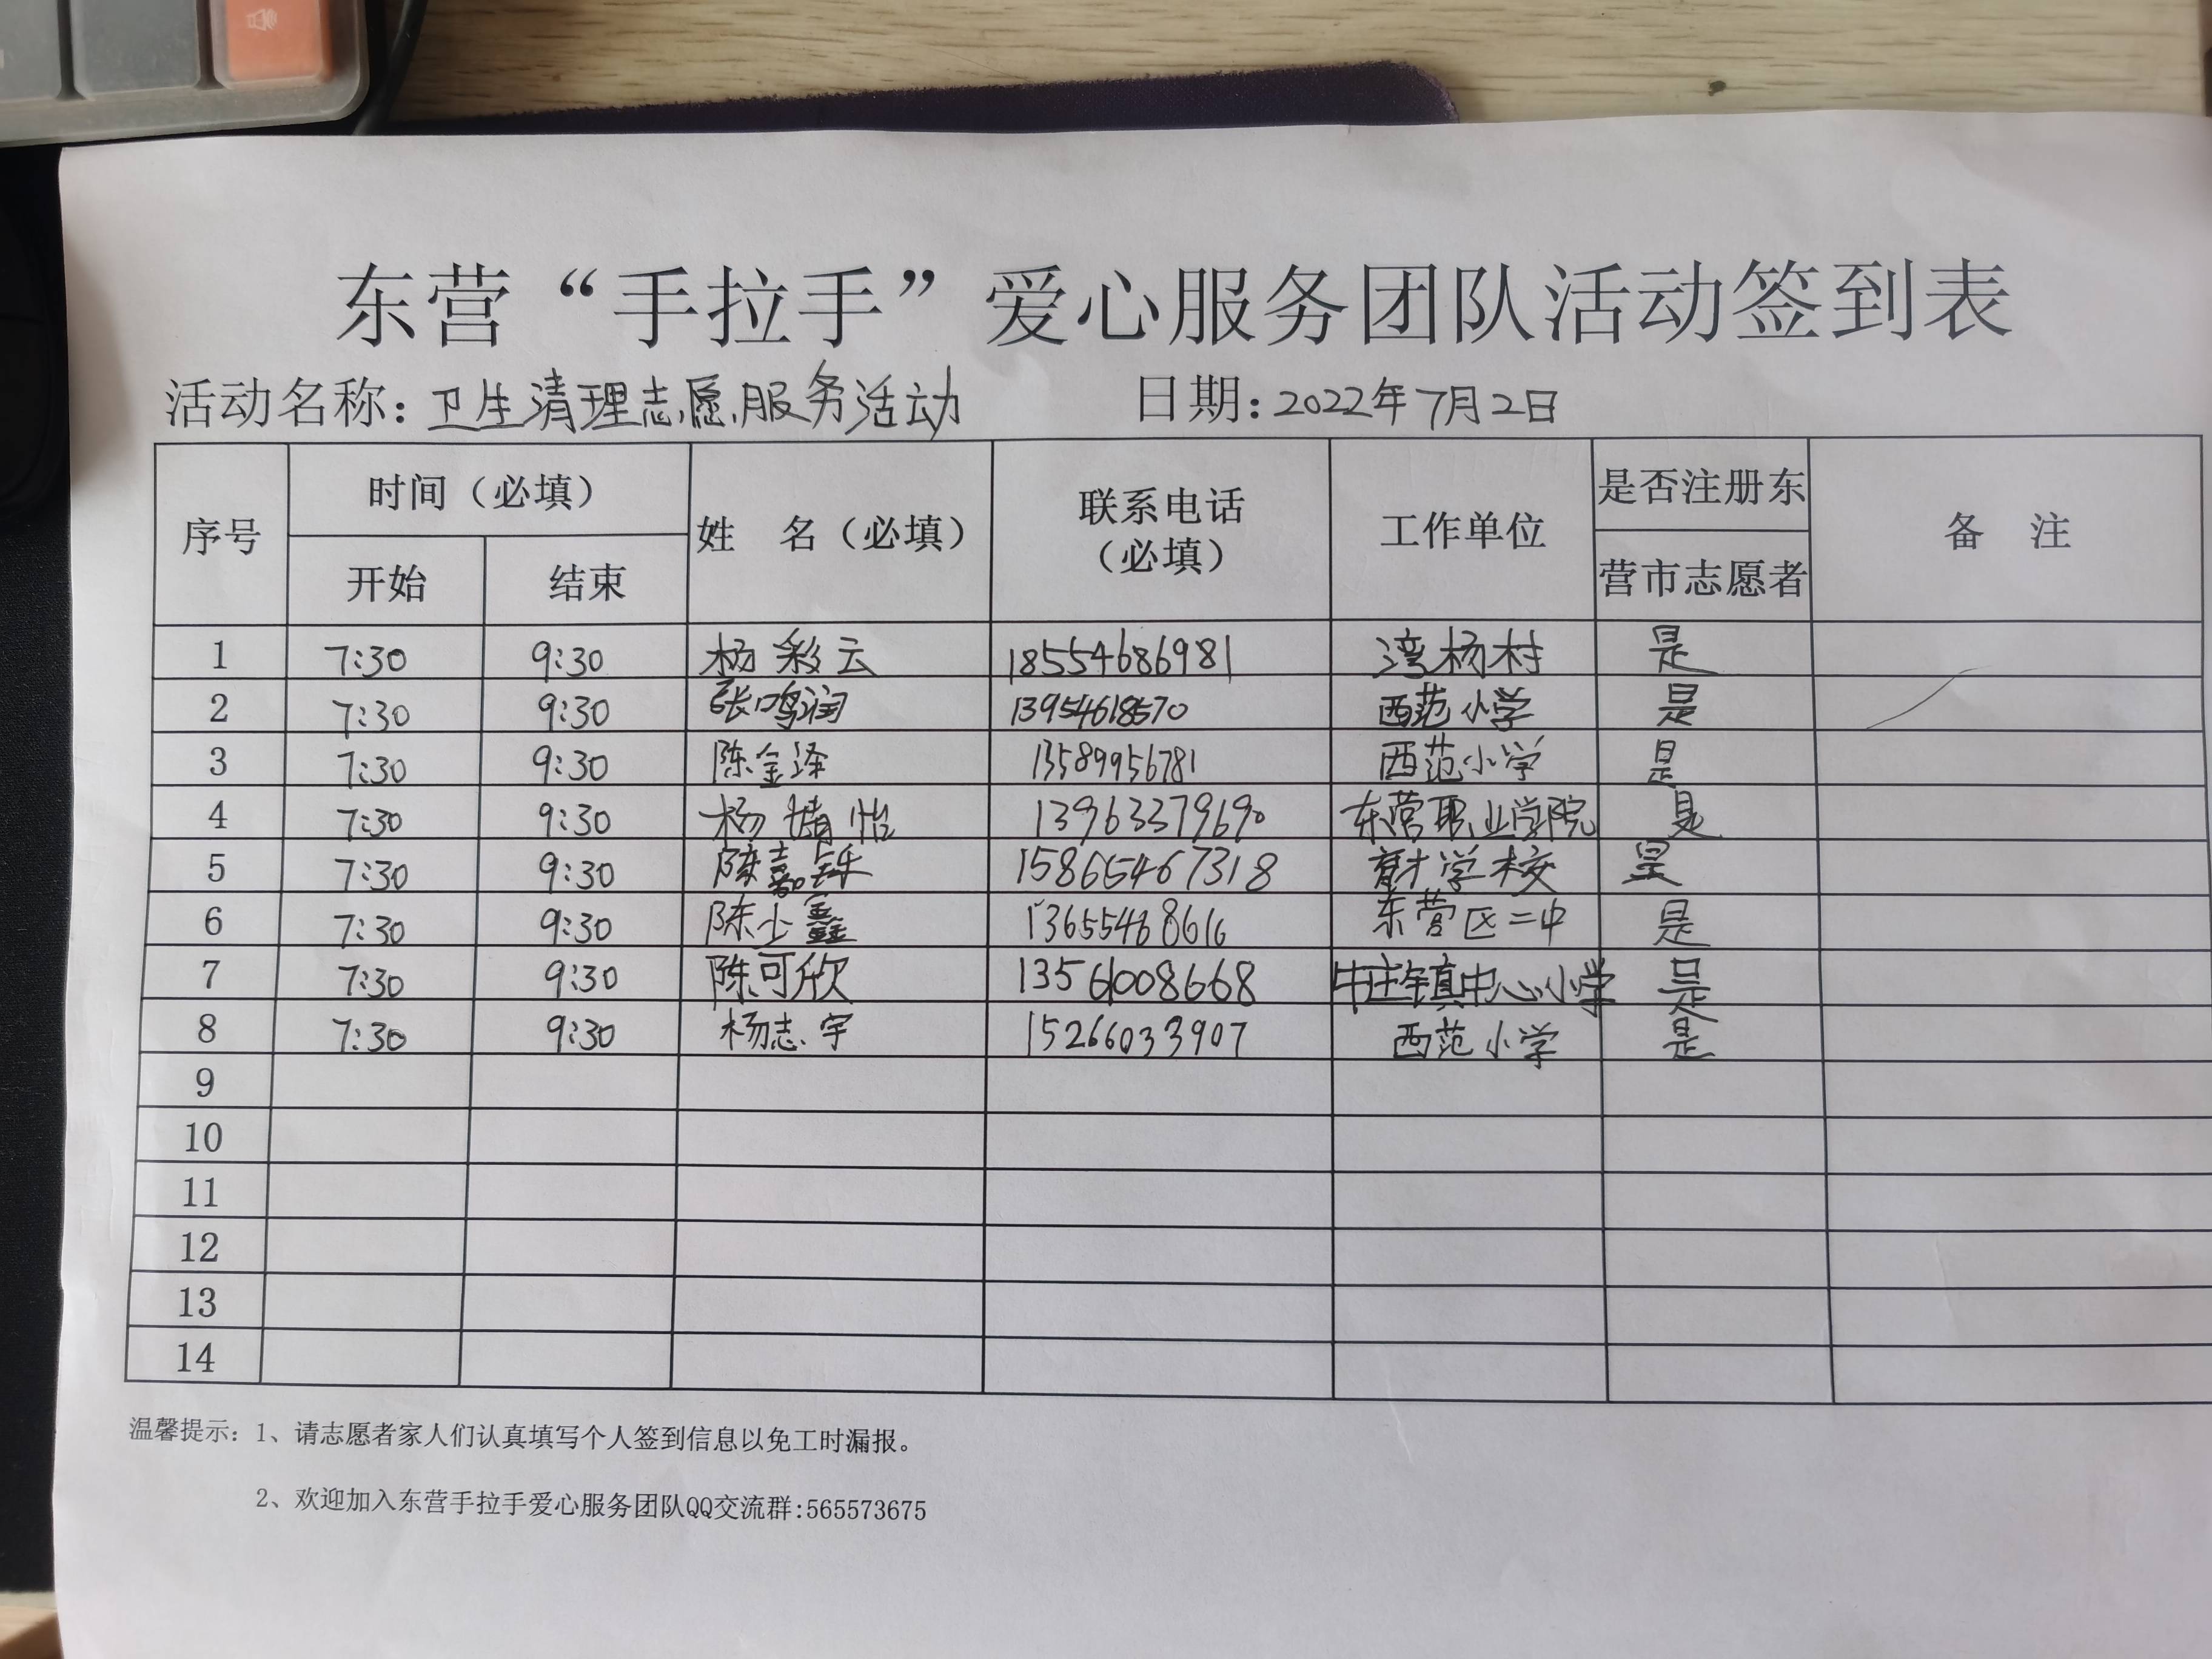 东营“手拉手”爱心服务团队活动签到表
活动名称：卫生清理志愿服务活动 日期：2022年7月2日
序号 时间（必填） 开始 结束 姓 名（必填） 联系电话（必填） 工作单位 是否注册东营市志愿者 备 注
1 7:30 9:30 杨彩云 18554686981 湾杨村 是
2 7:30 9:30 张鸣润 13954618570 西范小学 是
3 7:30 9:30 陈金泽 13589956781 西范小学 是
4 7:30 9:30 杨婧怡 13963379690 东营职业学院 是
5 7:30 9:30 陈嘉铄 15865467318 育才学校 是
6 7:30 9:30 陈士鑫 13655468616 东营区二中 是
7 7:30 9:30 陈可欣 13561008668 牛庄镇中心小学 是
8 7:30 9:30 杨志宇 15266033907 西范小学 是
9
10
11
12
13
14
温馨提示：1、请志愿者家人们认真填写个人签到信息以免工时漏报。
2、欢迎加入东营手拉手爱心服务团队QQ交流群:565573675